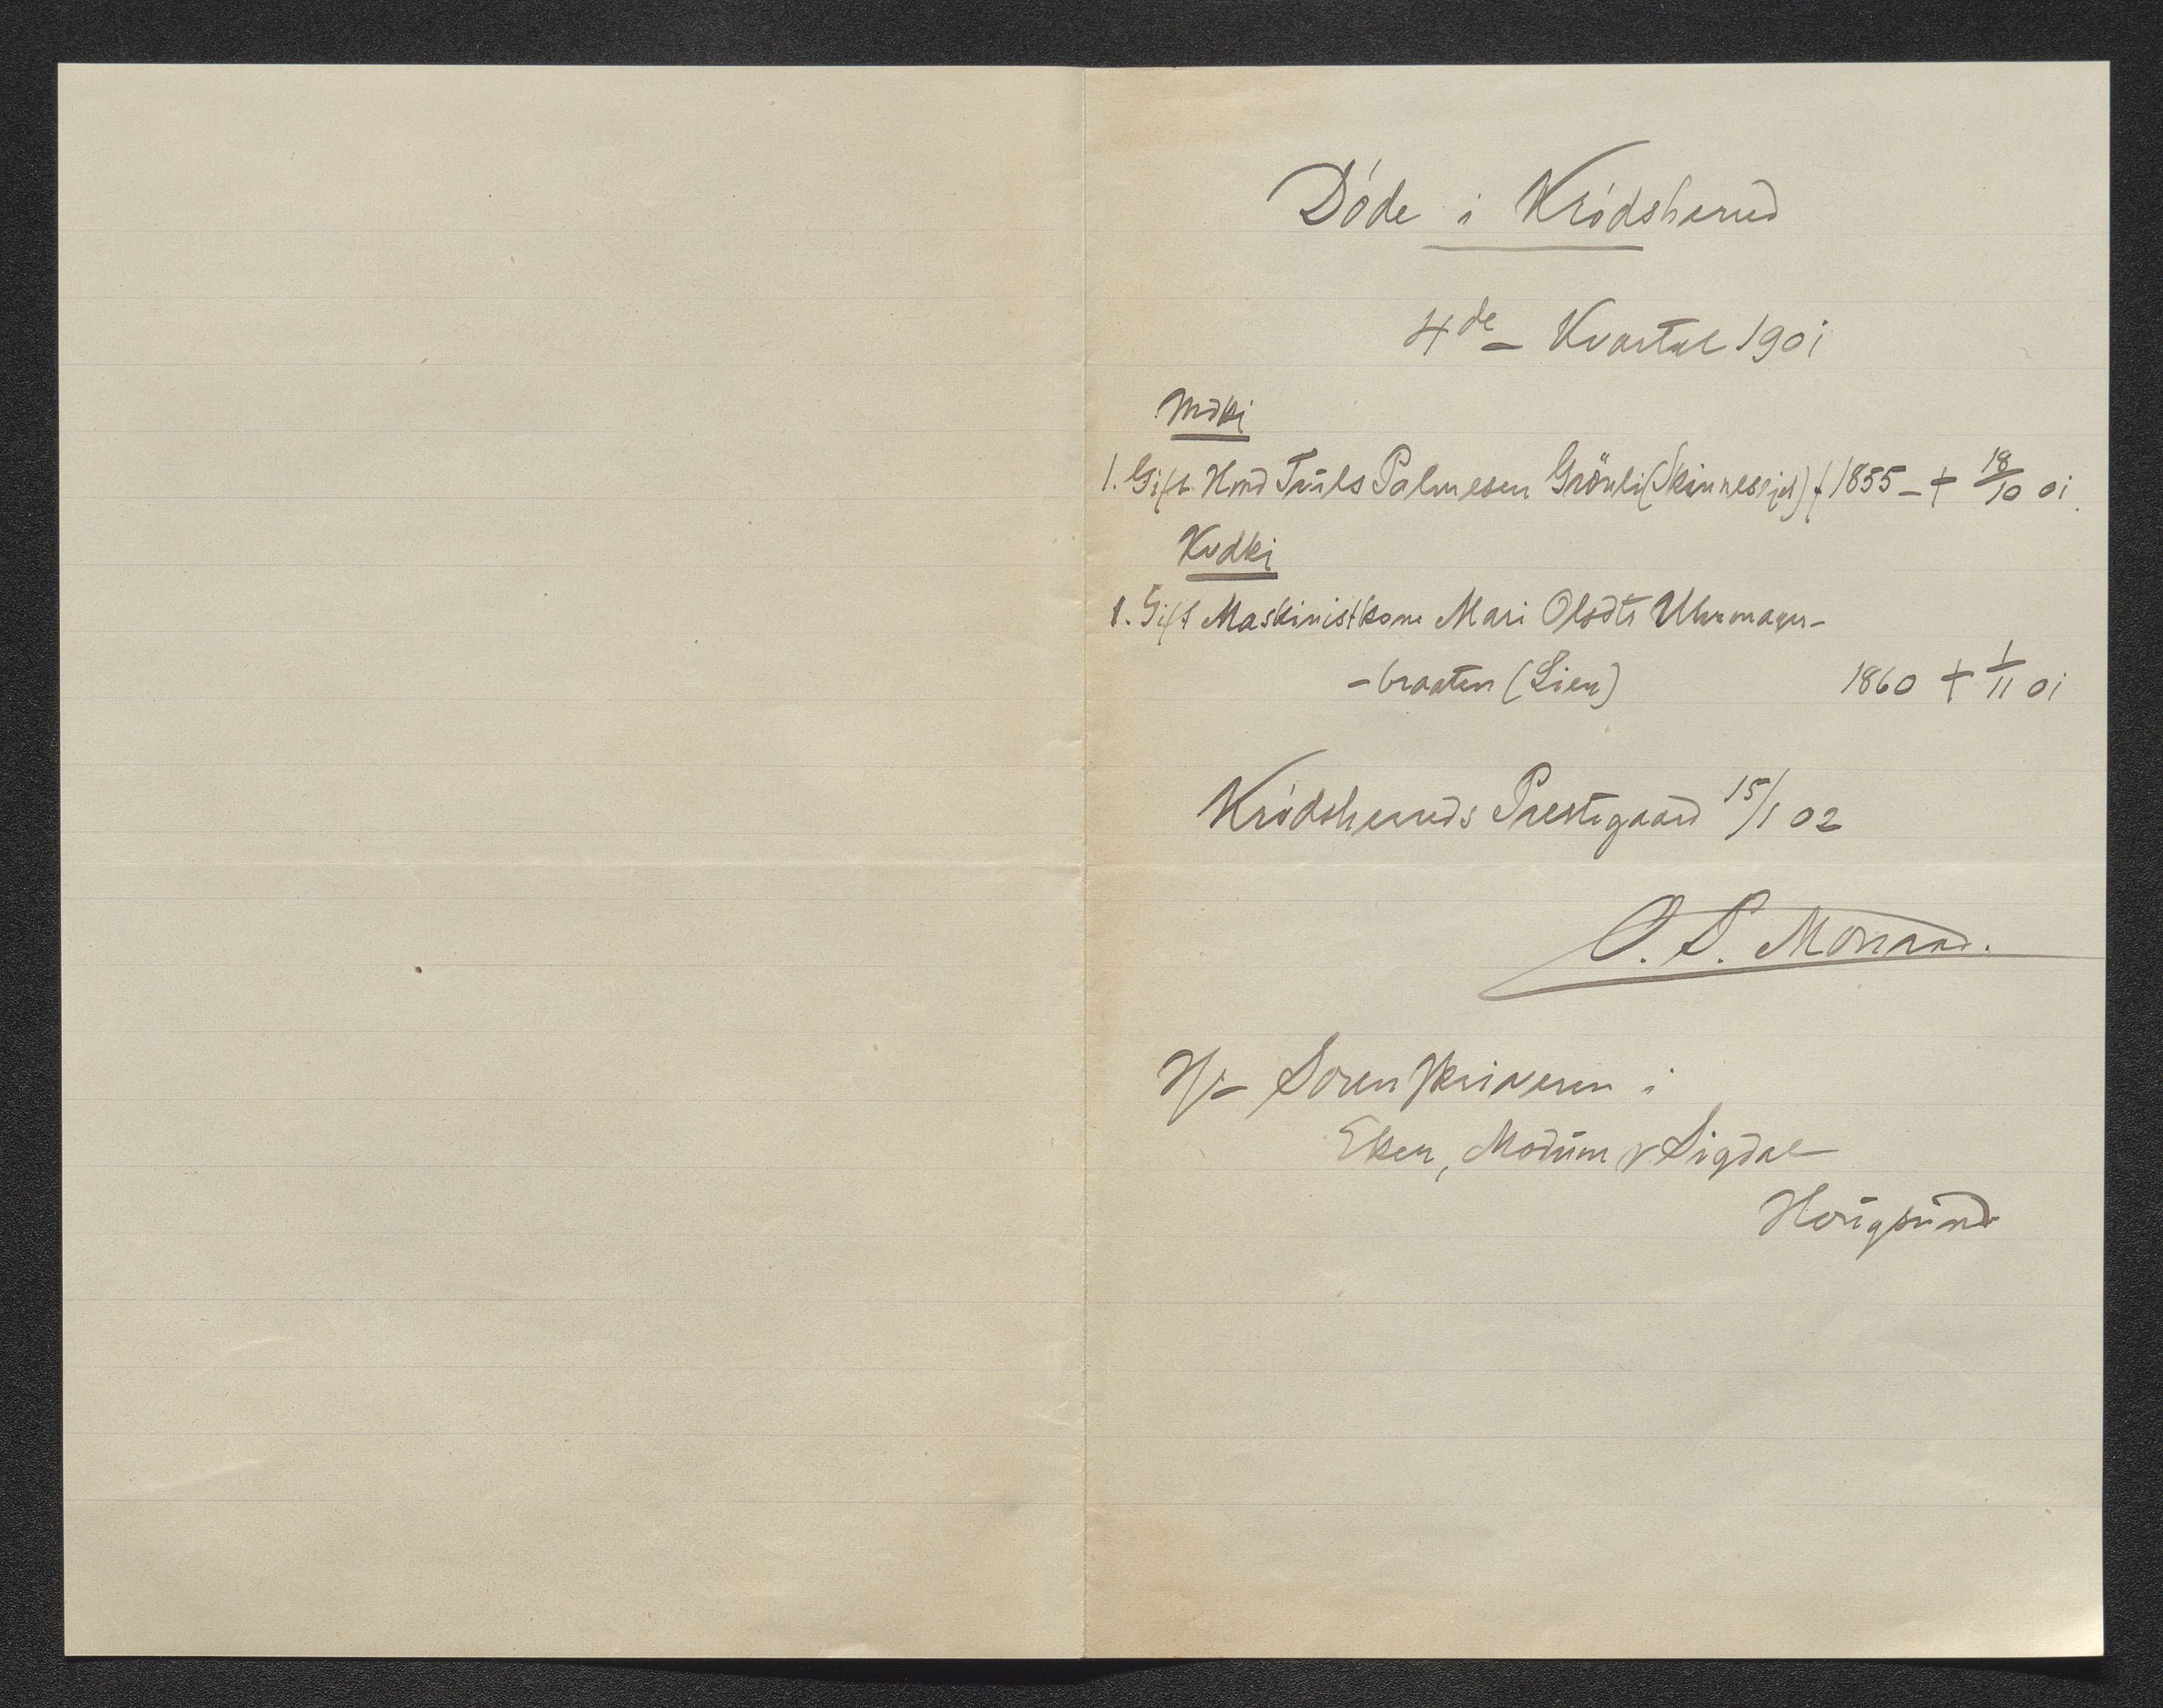 Döde i Krödsherred
4de – Kvartal 1901
Mdkj
1. Gift Hmd Truls Palmesen Grönli (Skinnesejet) f 1855 – + 18/10 01.
Kvdkj
1. Gift Maskinistkone Mari Olsdtr Uhrmager-
- braaten (Lien) 1860 + 1/11 01
Krödsherreds Prestegaard 15/1 02
O. S. Monrad.
Hr Sorenskriveren i
Eker, Modum & Sigdal
Hougsund